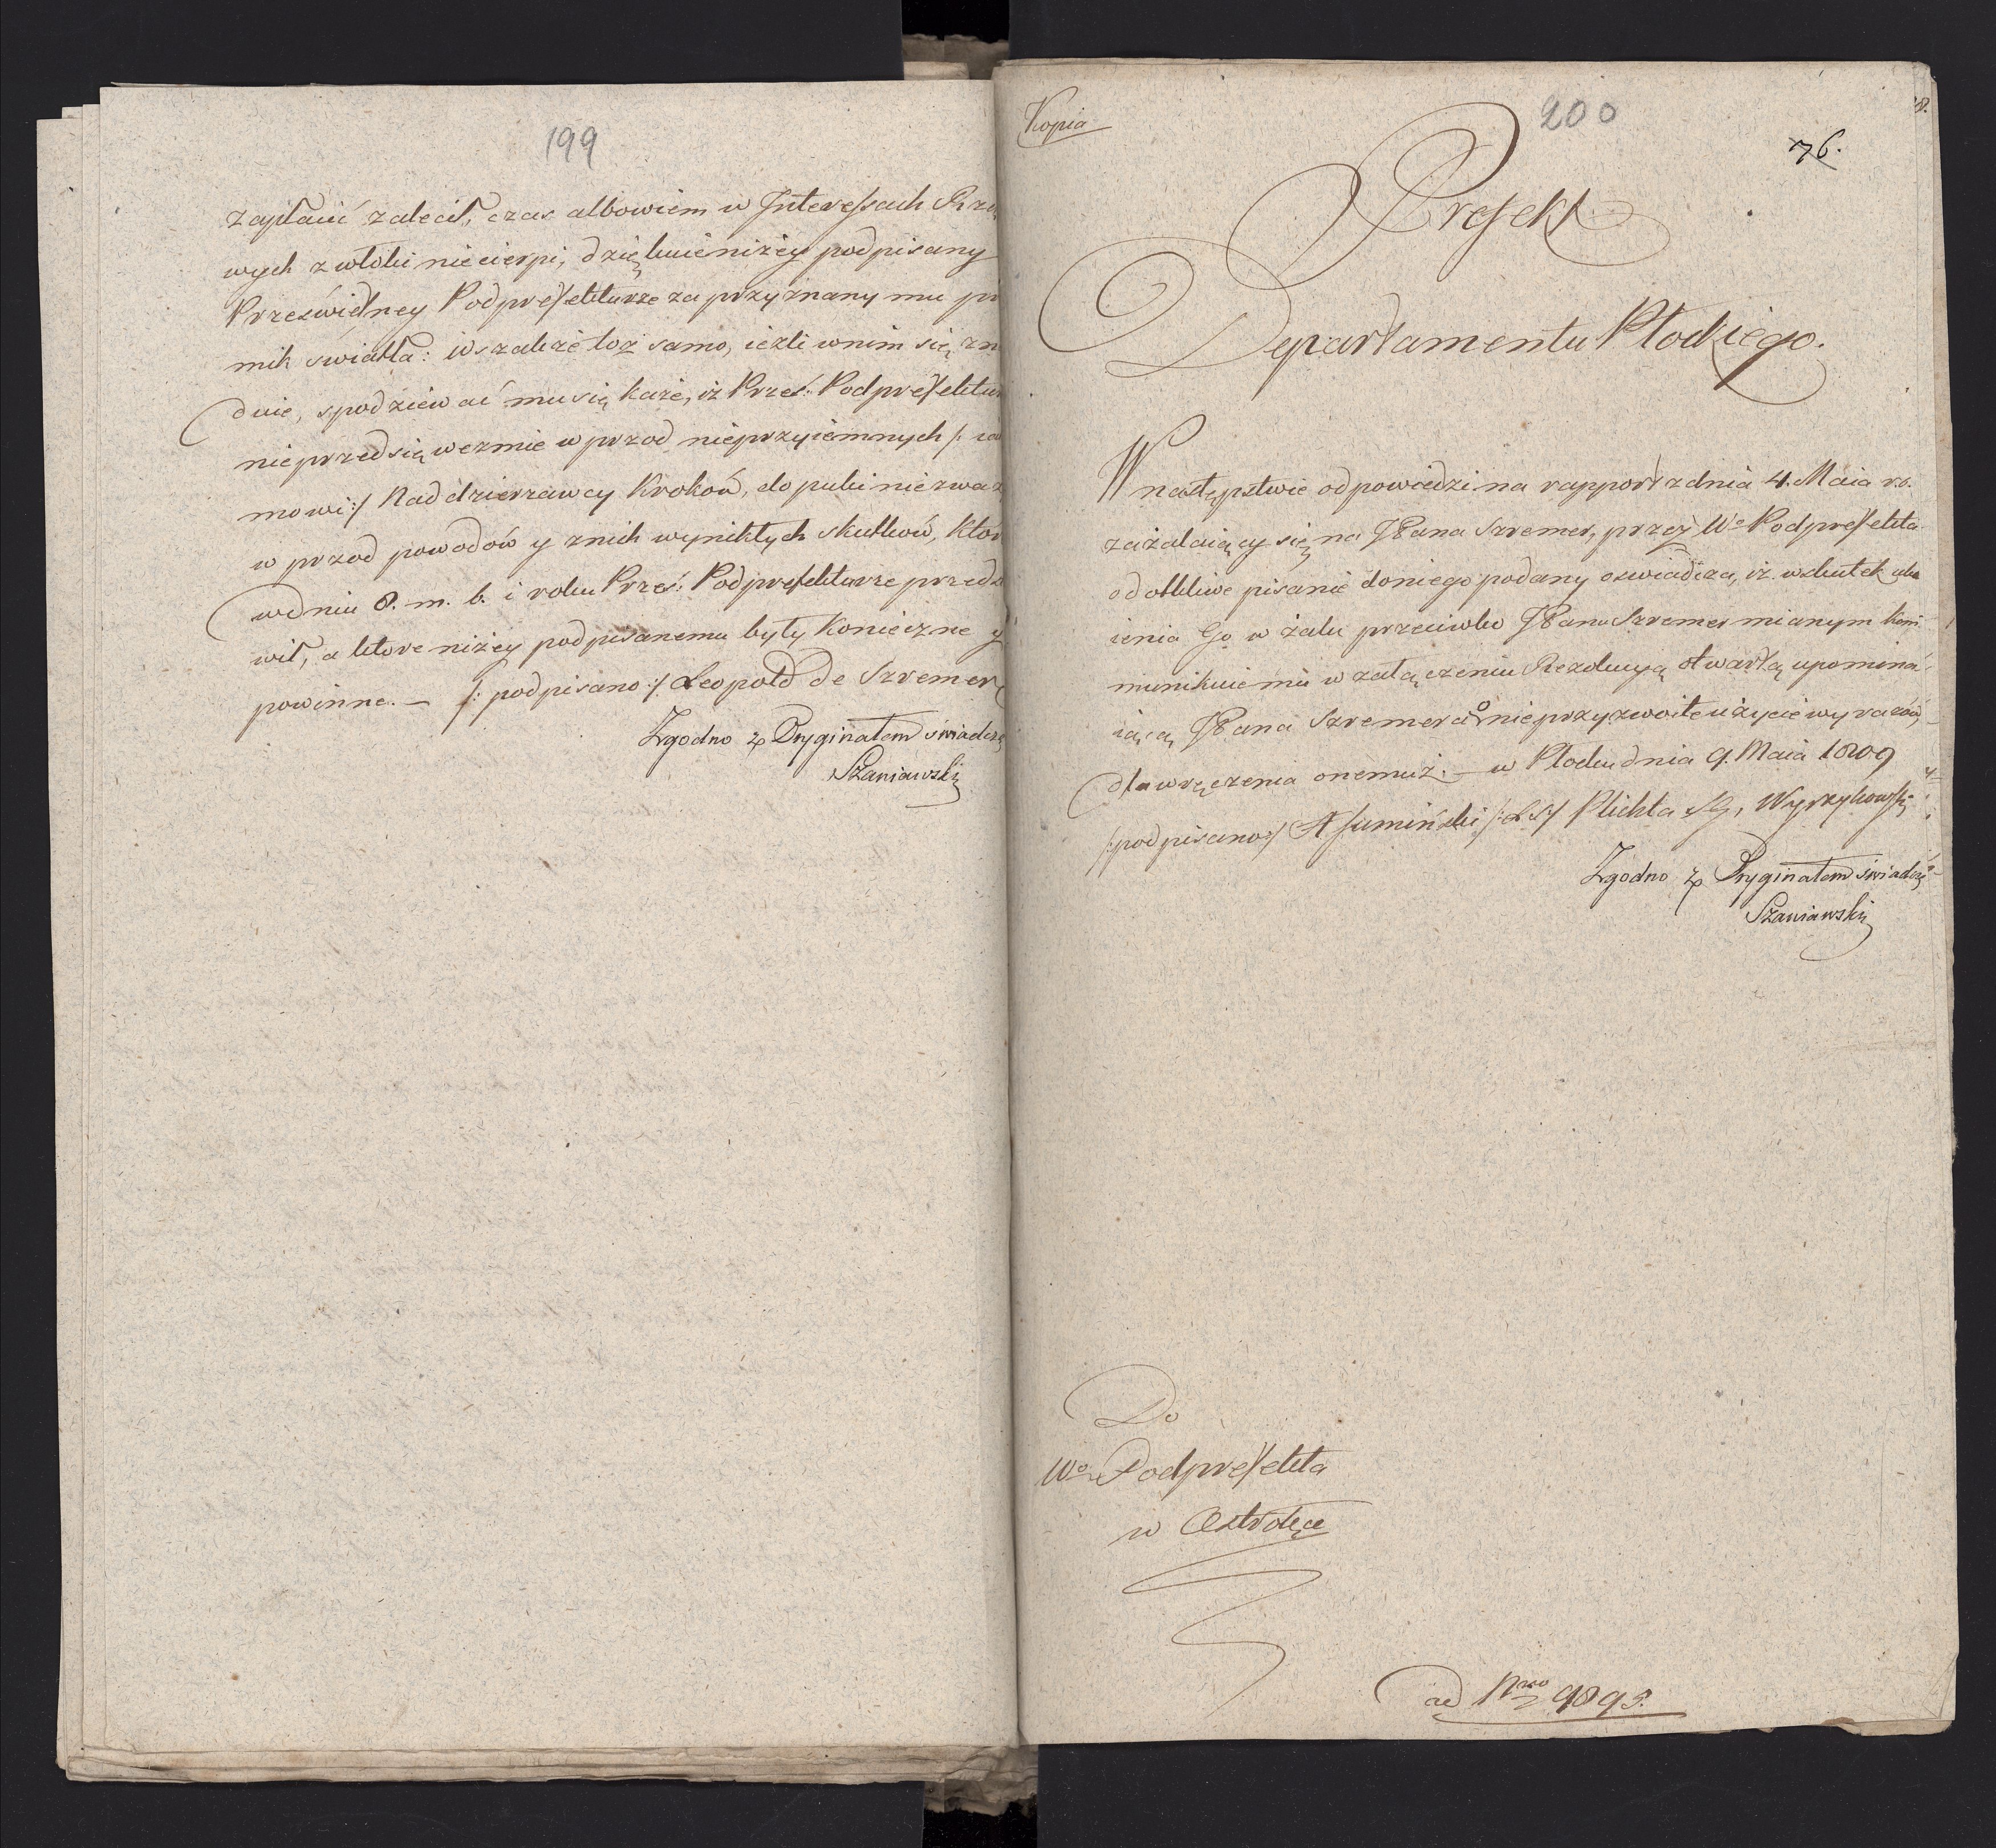 199
zapłacić zalecił, czas albowiem w Interessach Rzą
wych zwłoki niecierpi, dziękuie niżey podpisany
Prześwietney Podprefekturze za przyznany mu pro
mik swiatła: wszakże toż samo, ieżli wnim się zn
duie, spodziewać mu się każe, iż Prześ: Podprefektur
nieprzedsięwezmie w przod nieprzyiemnych /: 
mowi :/ Naddzierzawcy Kroków, do puki nie zwa
w przod powodów y znich wynikłych skutków, któr
wdniu 8. m. b. i roku Prześ: Podprefekturze przed
wił, a ktore niżey podpisanemu były Konieczne y
powinne. — /: podpisano :/ Leopold de Szremer
Zgodno z Oryginałem świadczę
Szaniawski
Kopia
200
76.
Prefekt
Departamentu Płockiego.
W następstwie odpowiedzi na rapport z dnia 4. Maia r.b.
zażalaiący się na JPana Szremer, przez Wo Podprefekta
odotkliwe pisanie doniego podany oswiadcza, iż wskutek
ienia Go w żalu przeciwko JPanu Szremer mianym Kom
munikuie mu w załączeniu Rezolucyą otwartą upomina
iącą JPana Szremera o nieprzyzwoite użycie wyrazów,
dla wręczenia onemuż. — w Płocku dnia 9. Maia 1809
/: podpisano :/ A Sumiński /: L.S :/ Plichta SG, Wyrzykowski
Zgodno z Oryginałem świadczę
Szaniawski
Do
Wo Podprefekta
w Ostrołęce
ad Nro 9895.